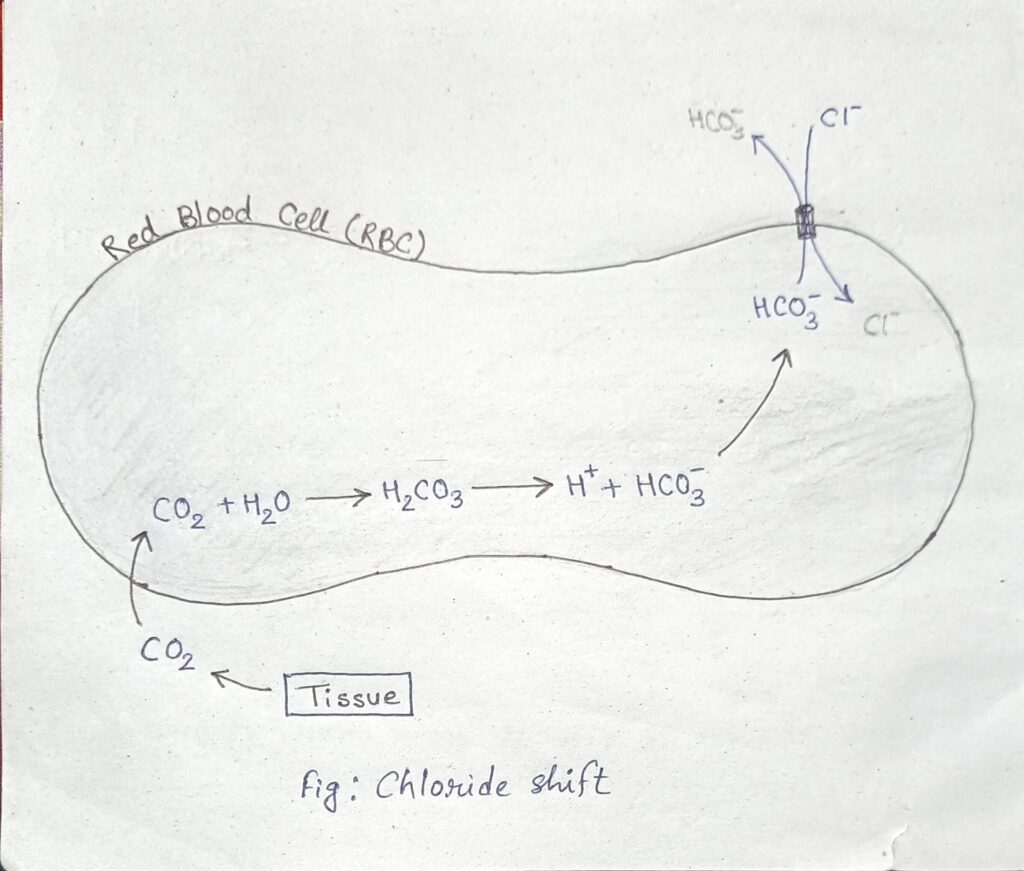 HCO₃⁻ Cl⁻
Red Blood Cell (RBC)
HCO₃⁻ Cl⁻
CO₂ + H₂O → H₂CO₃ → H⁺ + HCO₃⁻
CO₂
Tissue
Fig: Chloride shift